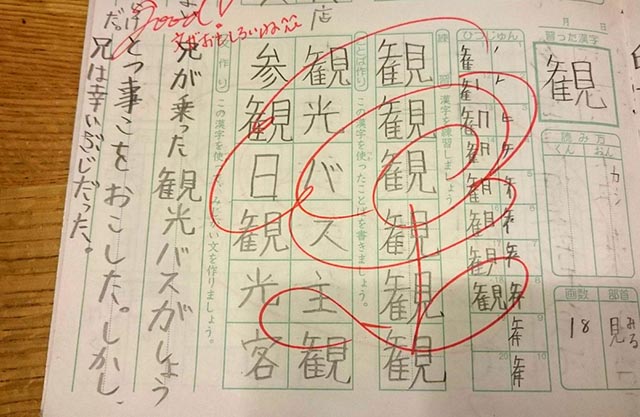 月 日
習った漢字
観
読み方
おん
カン
くん
部首
見
みる
画数
18
ひつじゅん
観
練習 漢字を練習しましょう。
観
観
観
観
観
観
ことば作り この漢字を使ったことばを書きましょう。
観光バス
主観
参観日
観光客
文作り この漢字を使って、みじかい文を作りましょう。
店
good!
文がおもしろいね
兄が乗った観光バスがしょう
とつ事こをおこした。しかし、
兄は幸いぶじだった。
だ。